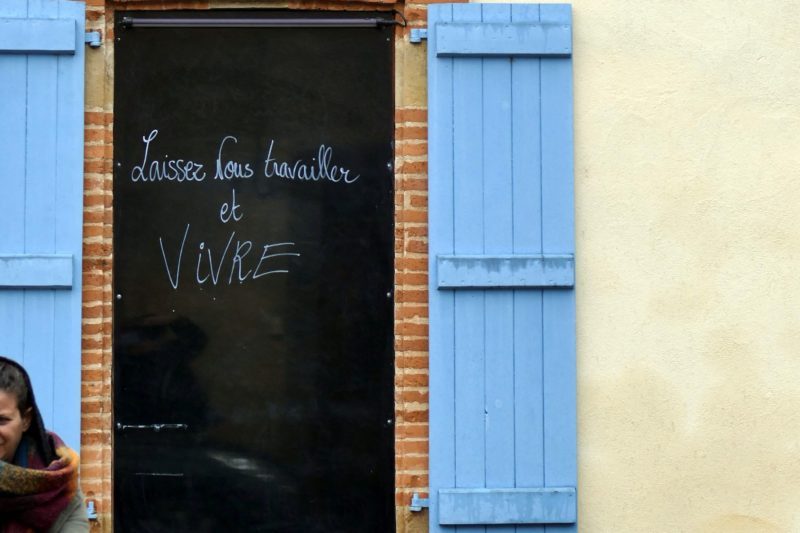 Laissez Nous travailler
et
ViVRE